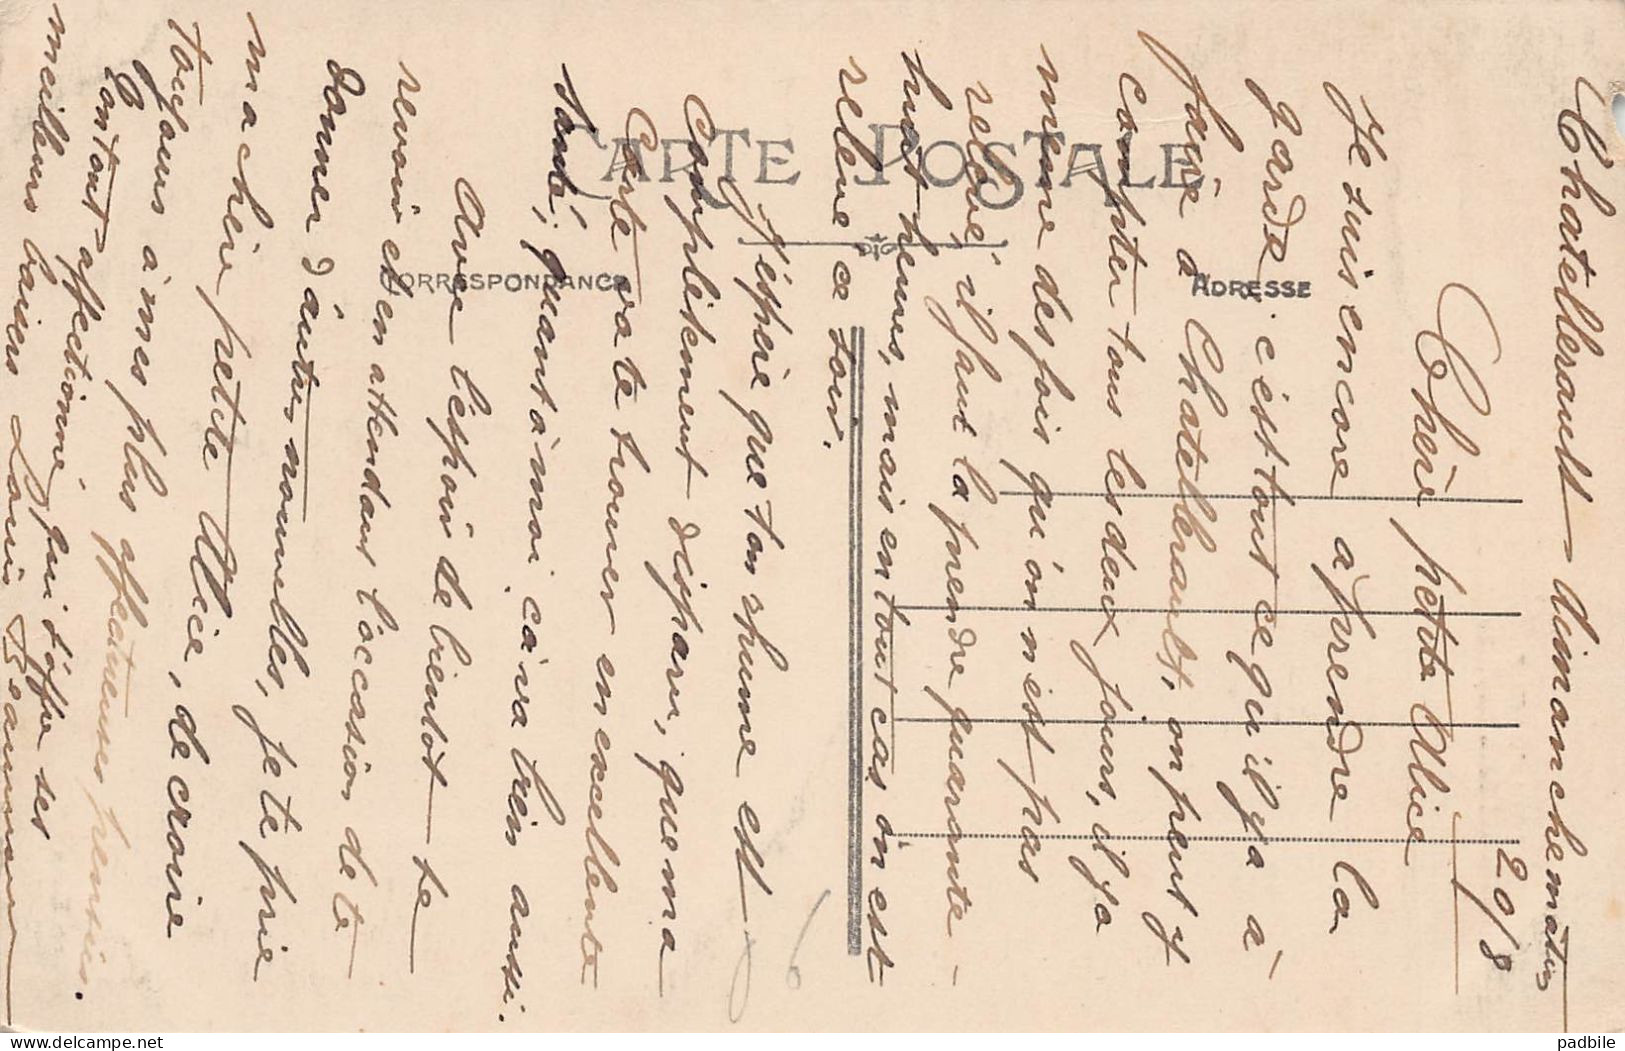 CARTE POSTALE
CORRESPONDANCE
ADRESSE
Chatellerault dimanche matin
20/8
Chère petite Alice
Je suis encore à prendre la
garde, c'est tout ce qu'il y a à
faire à Chatellerault, on peut y
compter tous les deux jours, il y a
même des fois qu'on n'est pas
relevé, il faut la prendre quarante-
huit heures, mais en tout cas on est
relevé ce soir.
J'éspère que ton rhume est
complètement disparu, que ma
Carte va te trouver en excellente
santé, quant à moi ça va très aussi.
Avec l'éspoir de bientôt te
revoir et en attendant l'occasion de te
donner d'autres nouvelles, je te prie
ma chère petite Alice, de croire
toujours à mes plus affectueuses pensées.
Ton tout affectionné, qui t'offre ses
meilleurs baisers Louis
padbile